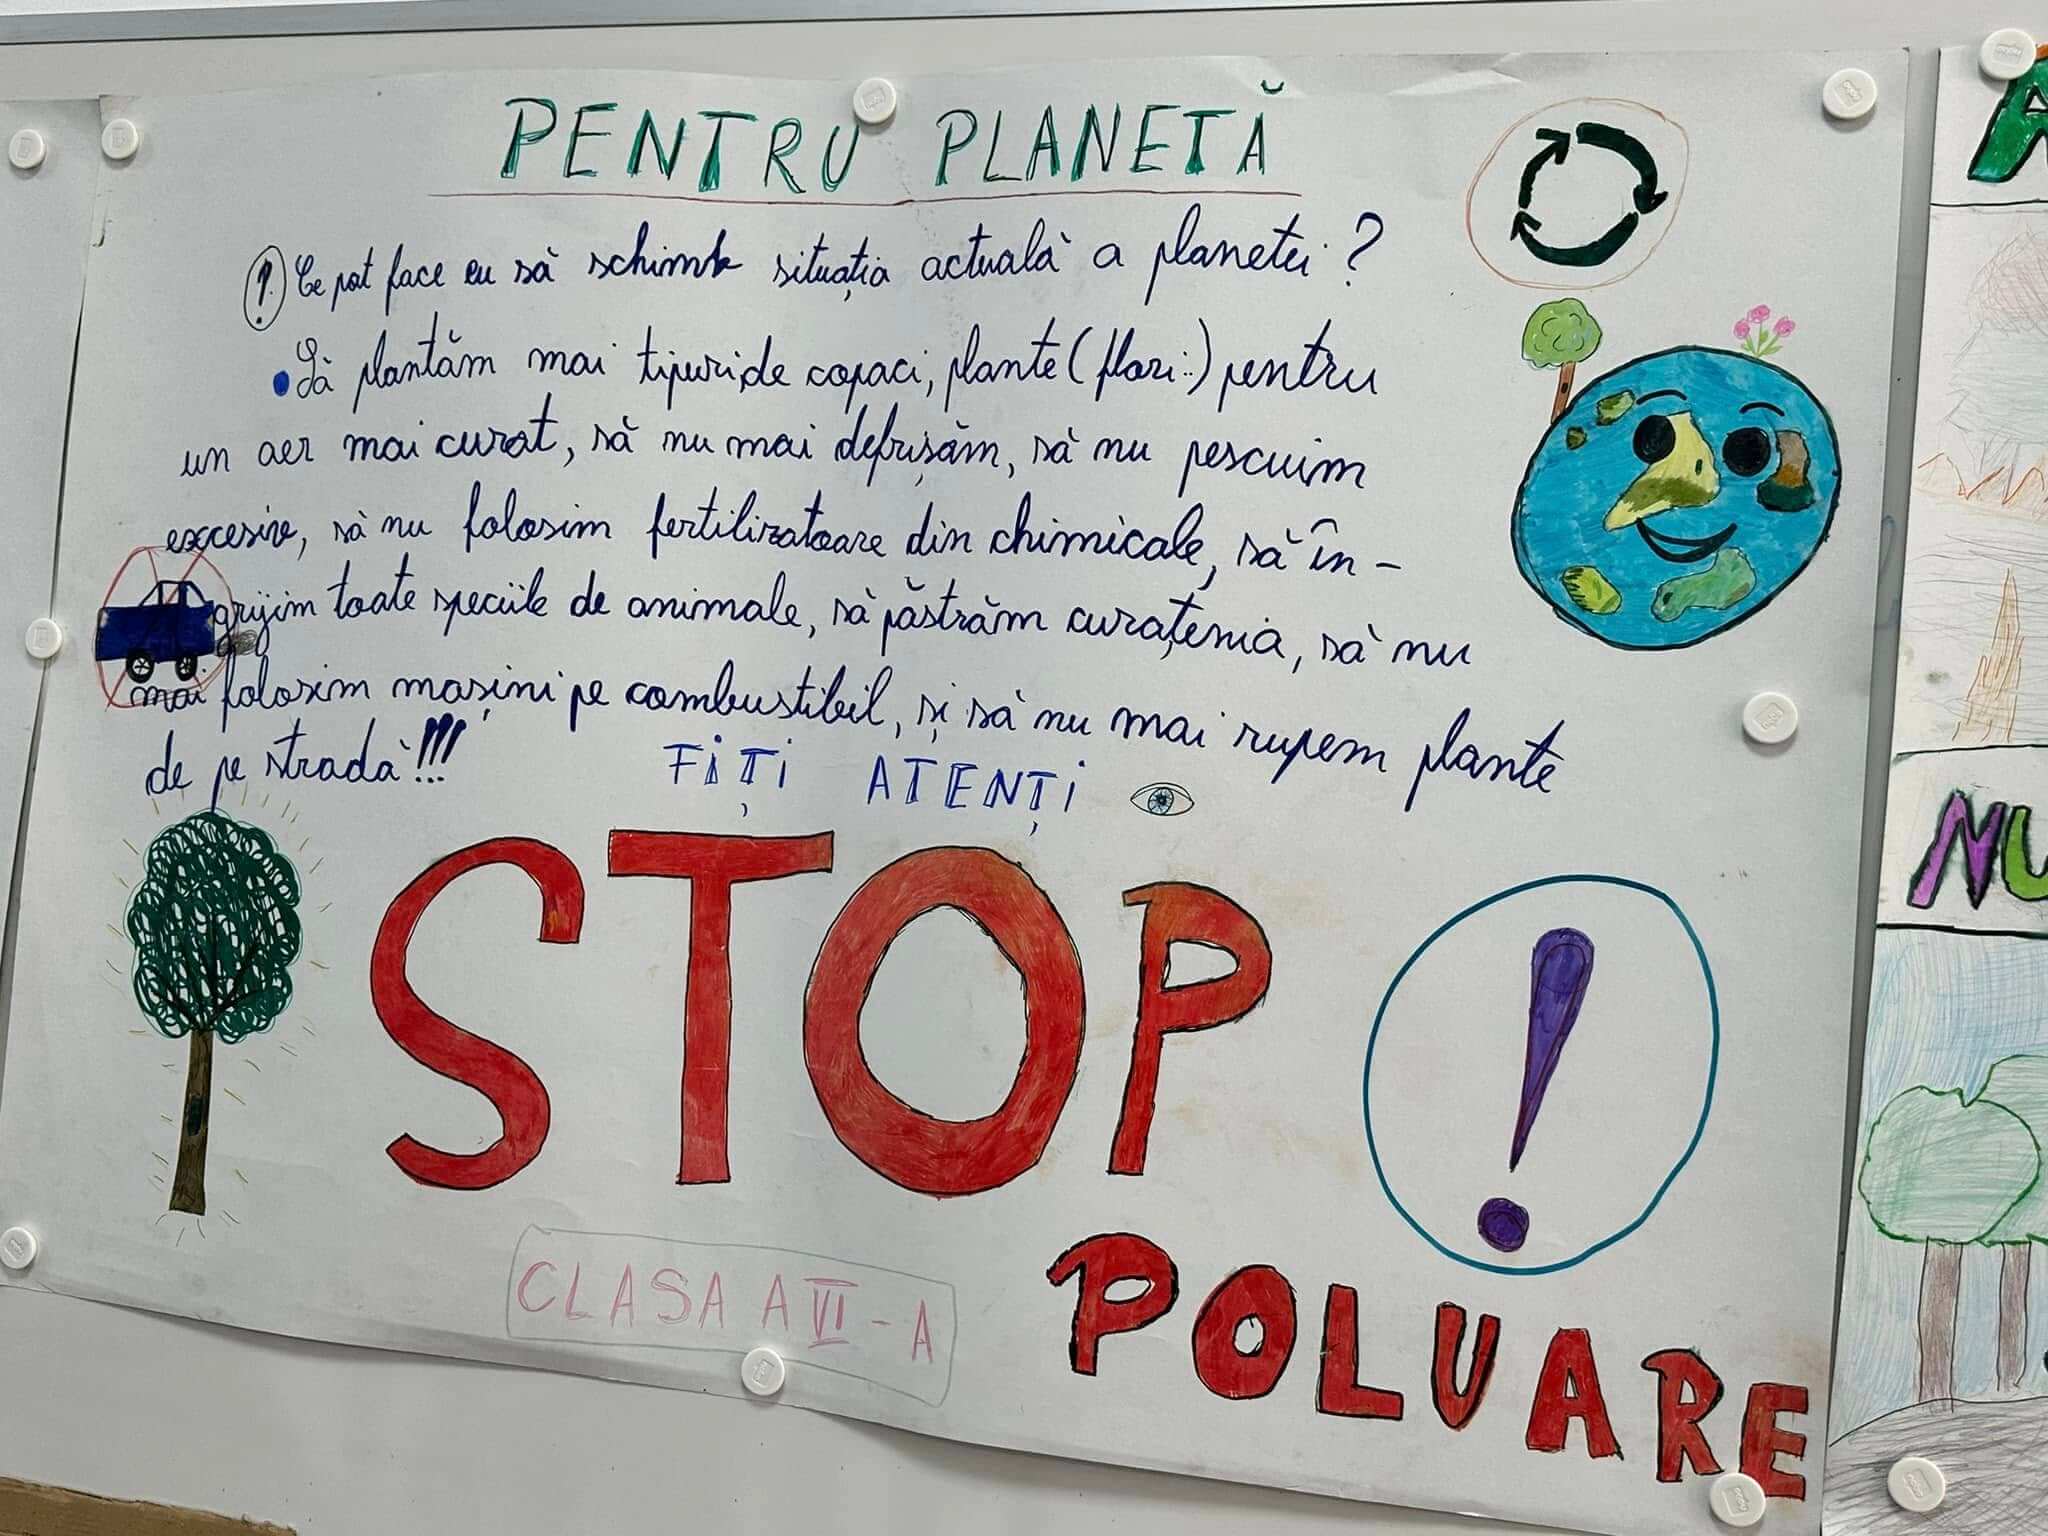 PENTRU PLANETĂ
? Ce pot face eu să schimb situația actuală a planetei?
• Să plantăm mai tipuri de copaci, plante (flori..) pentru
un aer mai curat, să nu mai defrișăm, să nu pescuim
excesiv, să nu folosim fertilizatoare din chimicale, să în-
grijim toate speciile de animale, să păstrăm curațenia, să nu
mai folosim mașini pe combustibil, și să nu mai rupem plante
de pe stradă!!!
FIȚI ATENȚI
STOP !
POLUARE
CLASA A VI-A
NU